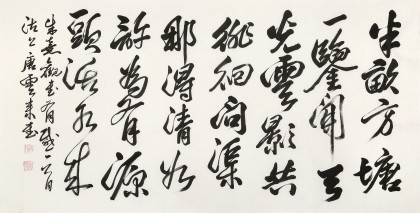 半畝方塘
一鑒開天
光雲影共
徘徊問渠
那得清如
許為有源
頭活水來
朱熹觀書有感一首
沽上唐雲來書